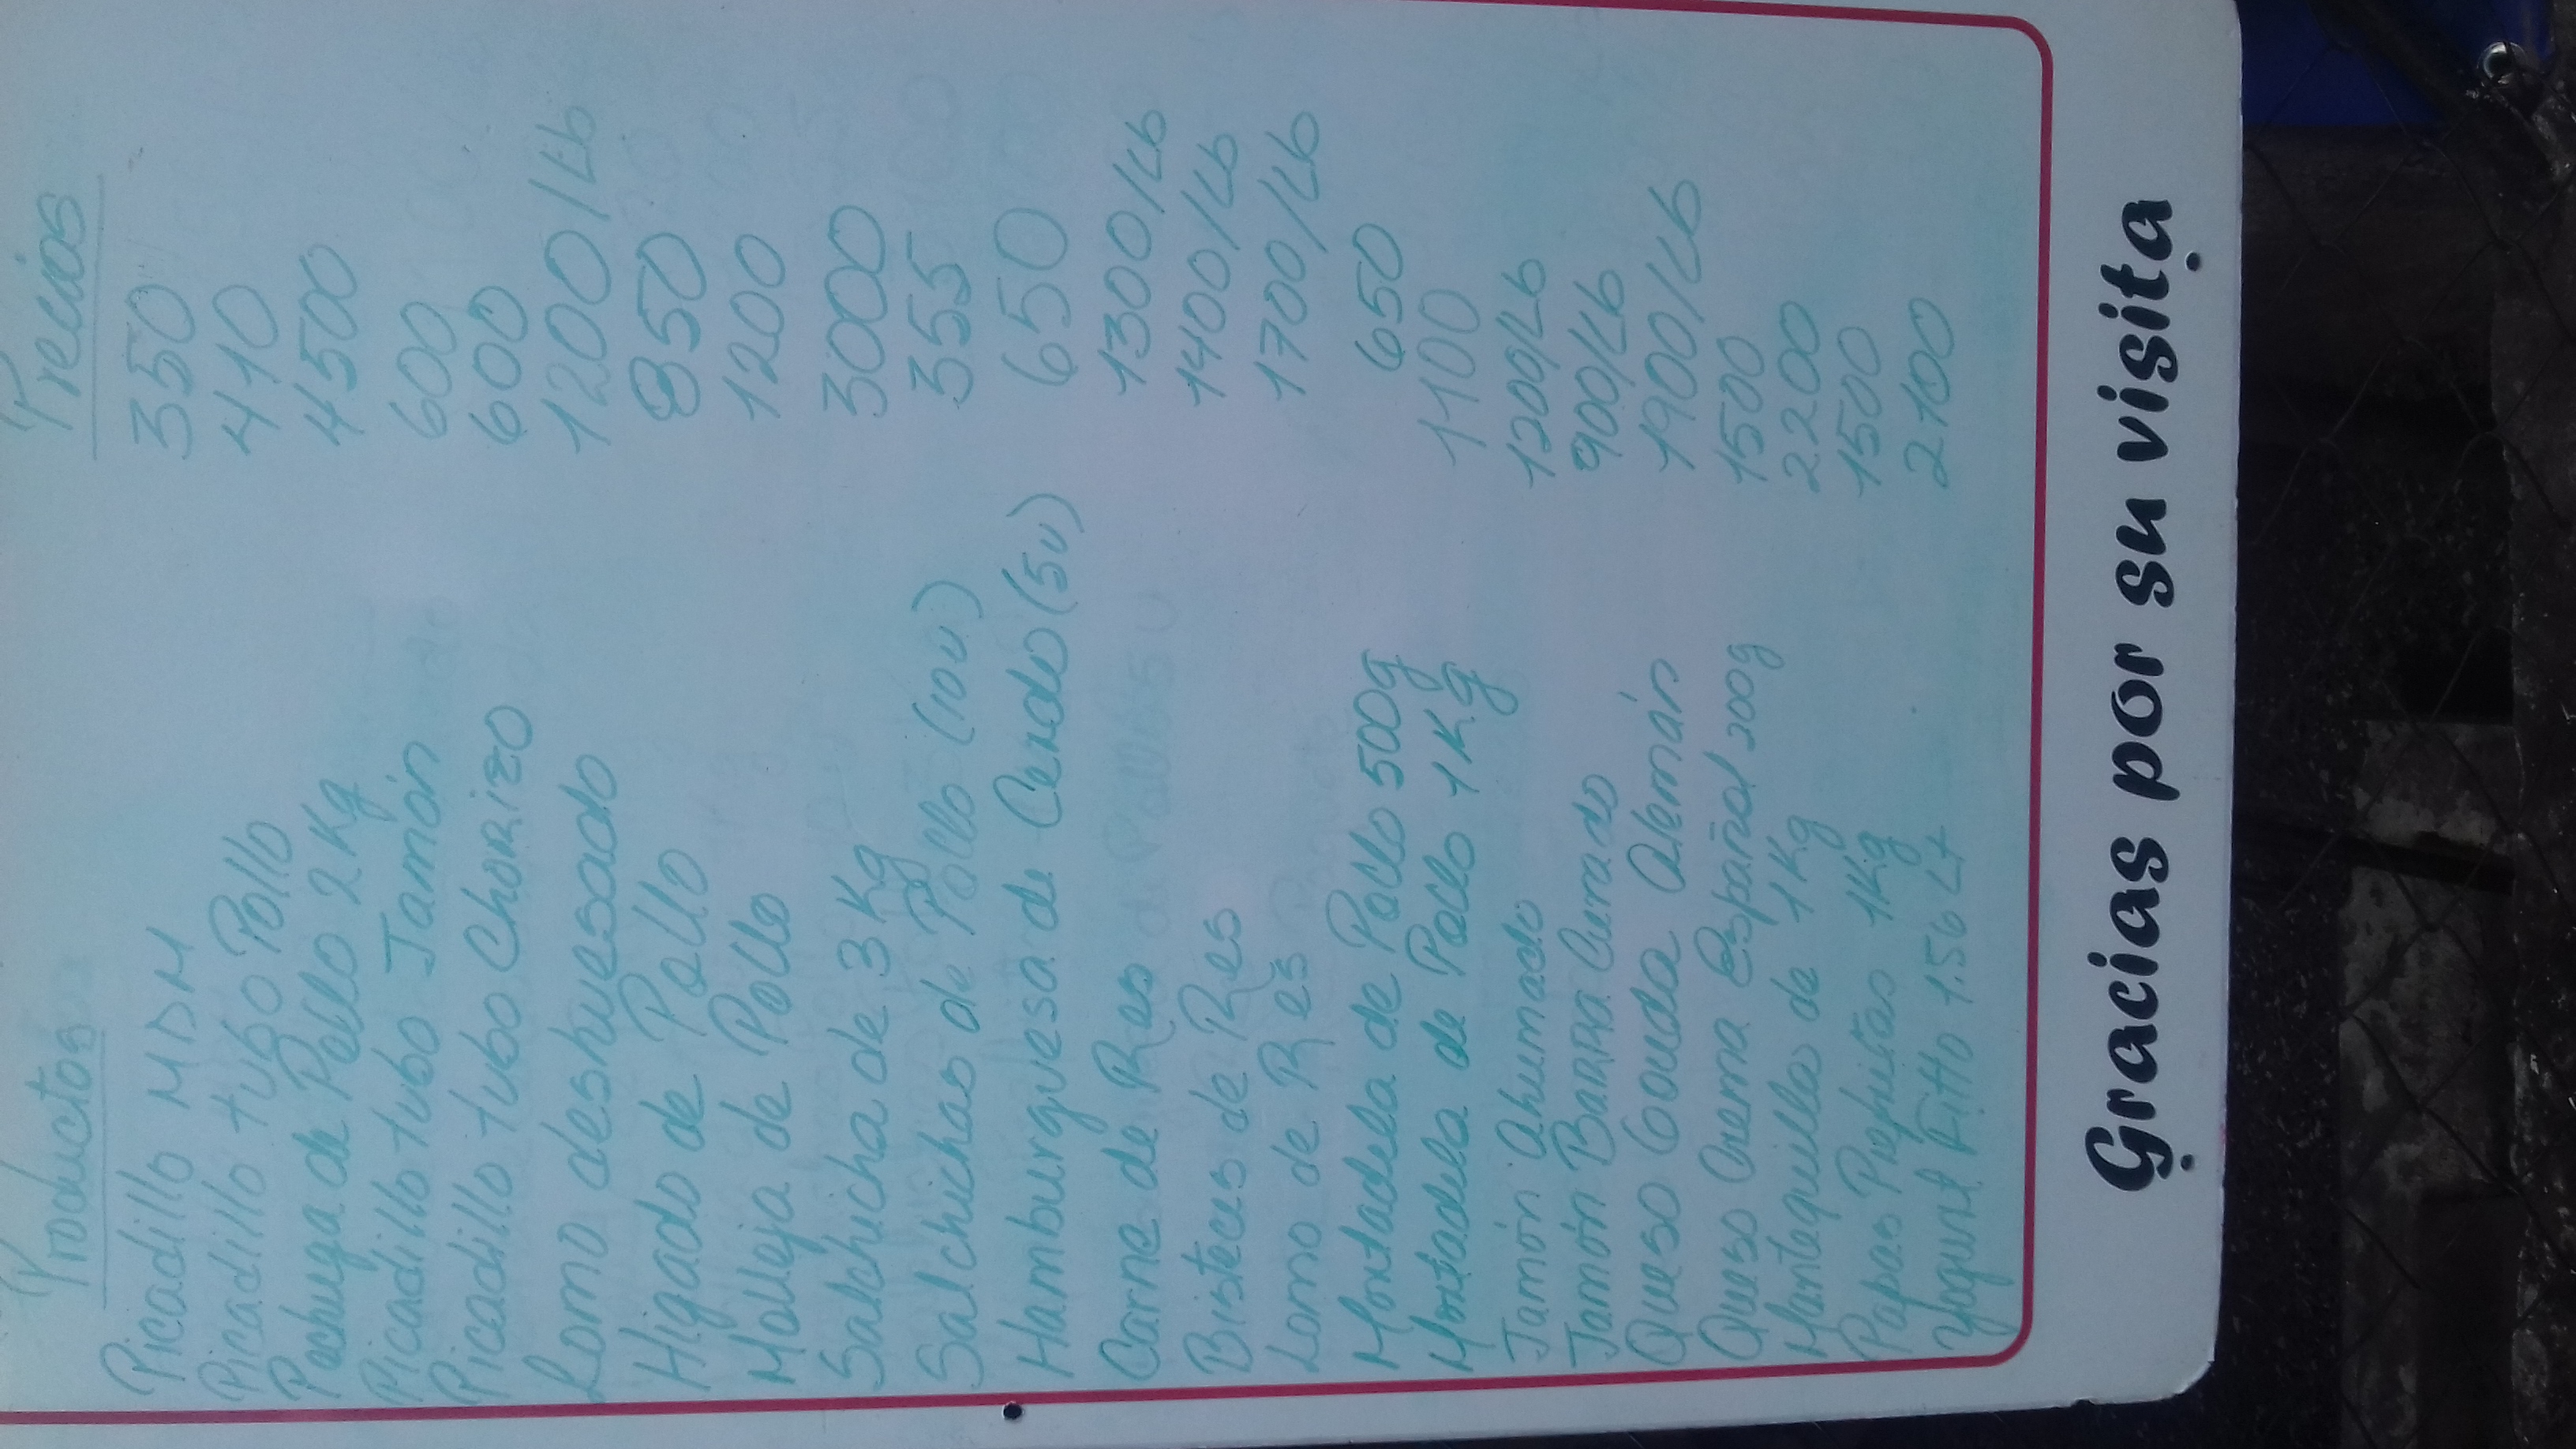 Productos Precios
Picadillo MDM 350
Picadillo tubo Pollo 410
Pechuga de Pollo 2Kg 4500
Picadillo tubo Jamón 600
Picadillo tubo Chorizo 600
Lomo deshuesado 1200/Lb
Higado de Pollo 850
Molleja de Pollo 1200
Salchicha de 3Kg 3000
Salchichas de Pollo (10u) 355
Hamburguesa de Cerdo (5u) 650
Carne de Res 1300/Lb
Bisteces de Res 1400/Lb
Lomo de Res 1700/Lb
Mortadela de Pollo 500g 650
Mortadela de Pollo 1Kg 1100
Jamón Ahumado 1200/Lb
Jamón Barra Curado 900/Lb
Queso Gouda Alemán 1900/Lb
Queso Crema Español 200g 1500
Mantequilla de 1Kg 2200
Papas Prefritas 1Kg 1500
Yogurt Fitto 1.56 Lt 2100
Gracias por su visita